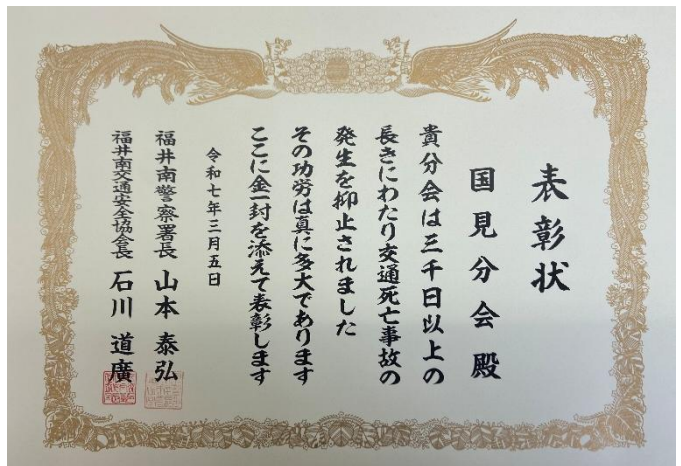 表彰状
国見分会殿
貴分会は三千日以上の
長さにわたり交通死亡事故の
発生を抑止されました
その功労は真に多大であります
ここに金一封を添えて表彰します
令和七年三月五日
福井南警察署長 山本泰弘
福井南交通安全協会長 石川道廣